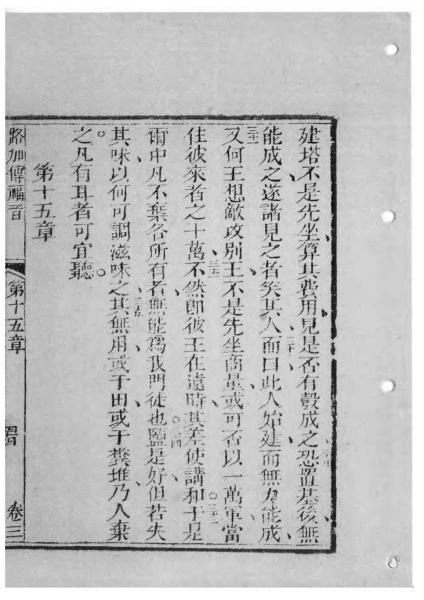 建塔不是先坐算其費用見是否有彀成之恐置基後無
能成之遂諸見之者笑其人而曰此人始建而無力能成
三十一
又何王想敵攻別王不是先坐商量或可否以一萬軍當
三十二
住彼來者之十萬不然卽彼王在遠時其差使講和于是
三十三
爾中凡不棄各所有者無能爲我門徒也
三十四
鹽是好但若失
其味以何可調滋味之
三十五
其無用或于田或于糞堆乃人棄
之凡有耳者可宜聽
第十五章
路加傳福音
第十五章
卷三